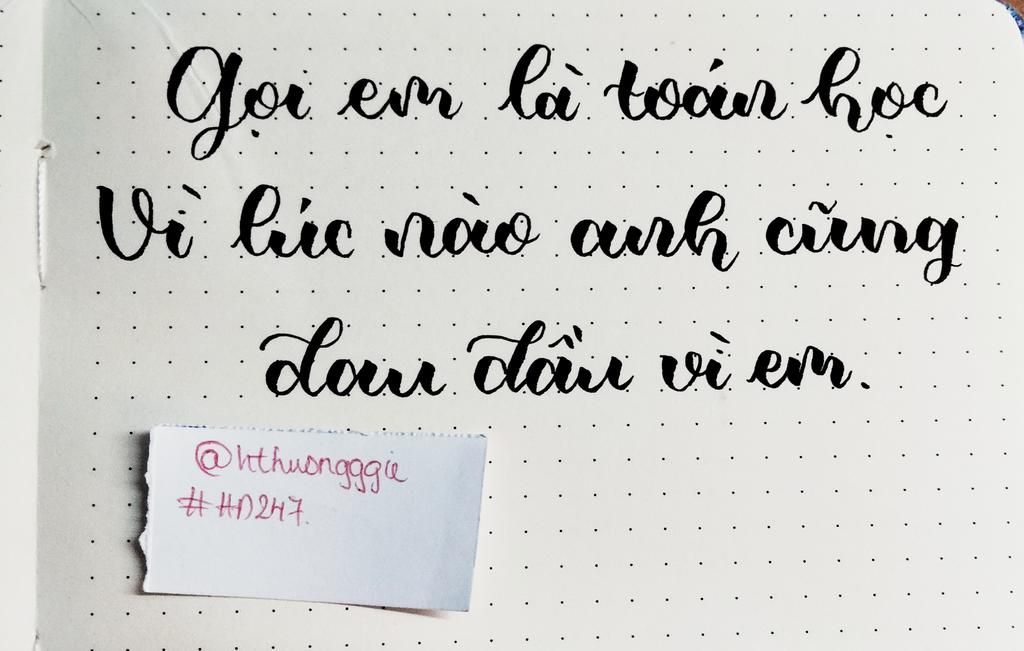 Gọi em là toán học
Vì lúc nào anh cũng
đau đầu vì em.
@hthuongggie
#HD247.